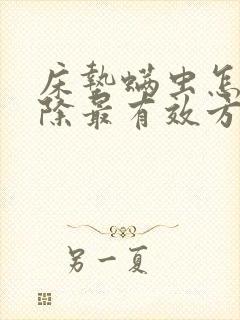 床蛰螨虫怎
除最有效方
另一夏